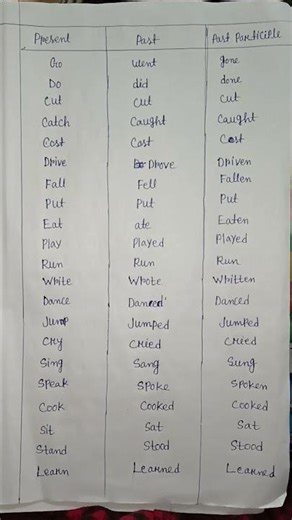 Present Past Past Participle
Go Went gone
Do did done
Cut Cut Cut
Catch Caught Caught
Cost Cost Cost
Drive Drove Driven
Fall Fell Fallen
Put Put Put
Eat ate Eaten
Play Played Played
Run Run Run
White Whote Whitten
Dance Danced Danced
Jump Jumped Jumped
Cry Cried Cried
Sing Sang Sung
Speak Spoke Spoken
Cook Cooked Cooked
Sit Sat Sat
Stand Stood Stood
Learn Learned Learned